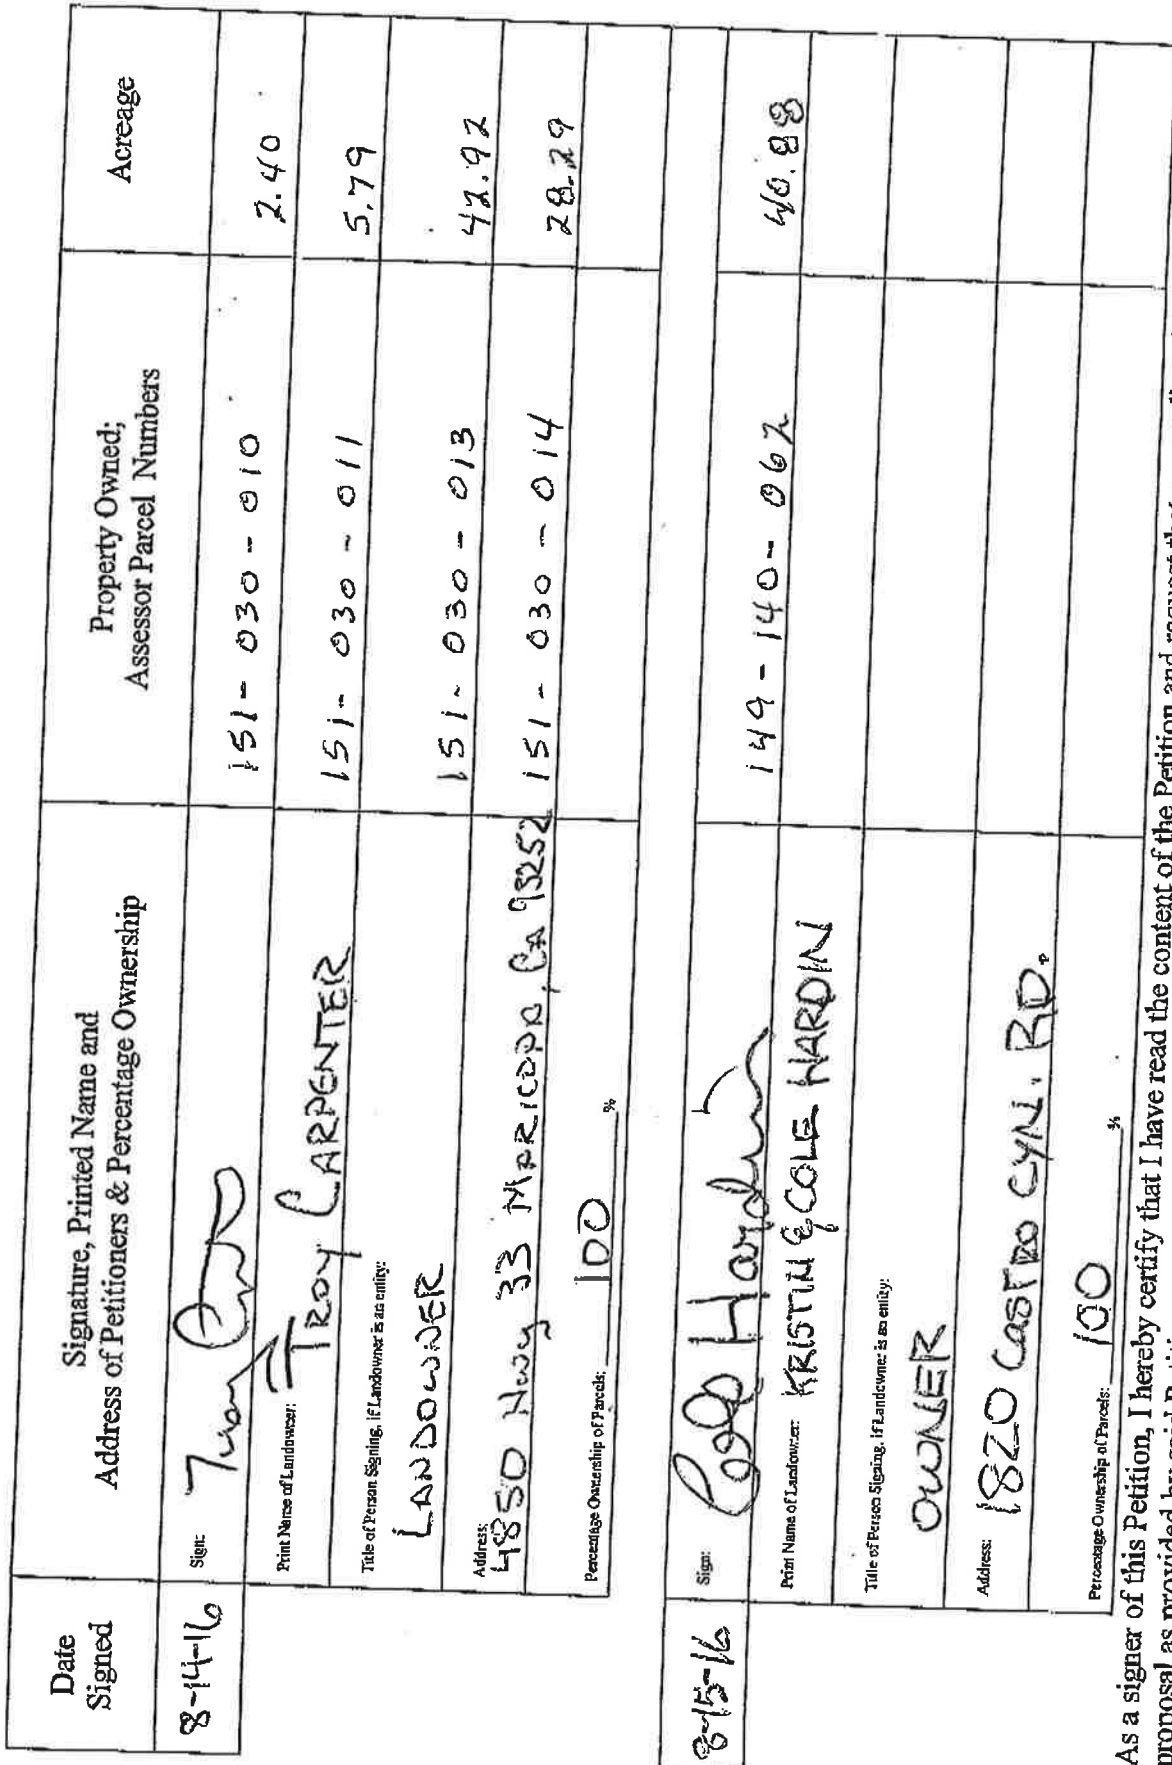 Date
Signed
Signature, Printed Name and
Address of Petitioners & Percentage Ownership
Property Owned;
Assessor Parcel Numbers
Acreage
8-14-16
Sign:
151-030-010
2.40
Print Name of Landowner: TROY CARPENTER
151-030-011
5.79
Title of Person Signing, if Landowner is an entity:
LANDOWNER
151-030-013
42.92
Address:
4850 Hwy 33 MARICOPA, CA 93252
151-030-014
28.29
Percentage Ownership of Parcels: 100 %
8-15-16
Sign: Cole Hardin
Print Name of Landowner: KRISTIN & COLE HARDIN
149-140-062
40.88
Title of Person Signing, if Landowner is an entity:
OWNER
Address: 1820 CASTRO CYN. RD.
Percentage Ownership of Parcels: 100 %
As a signer of this Petition, I hereby certify that I have read the content of the Petition and request that
proposal as provided by said